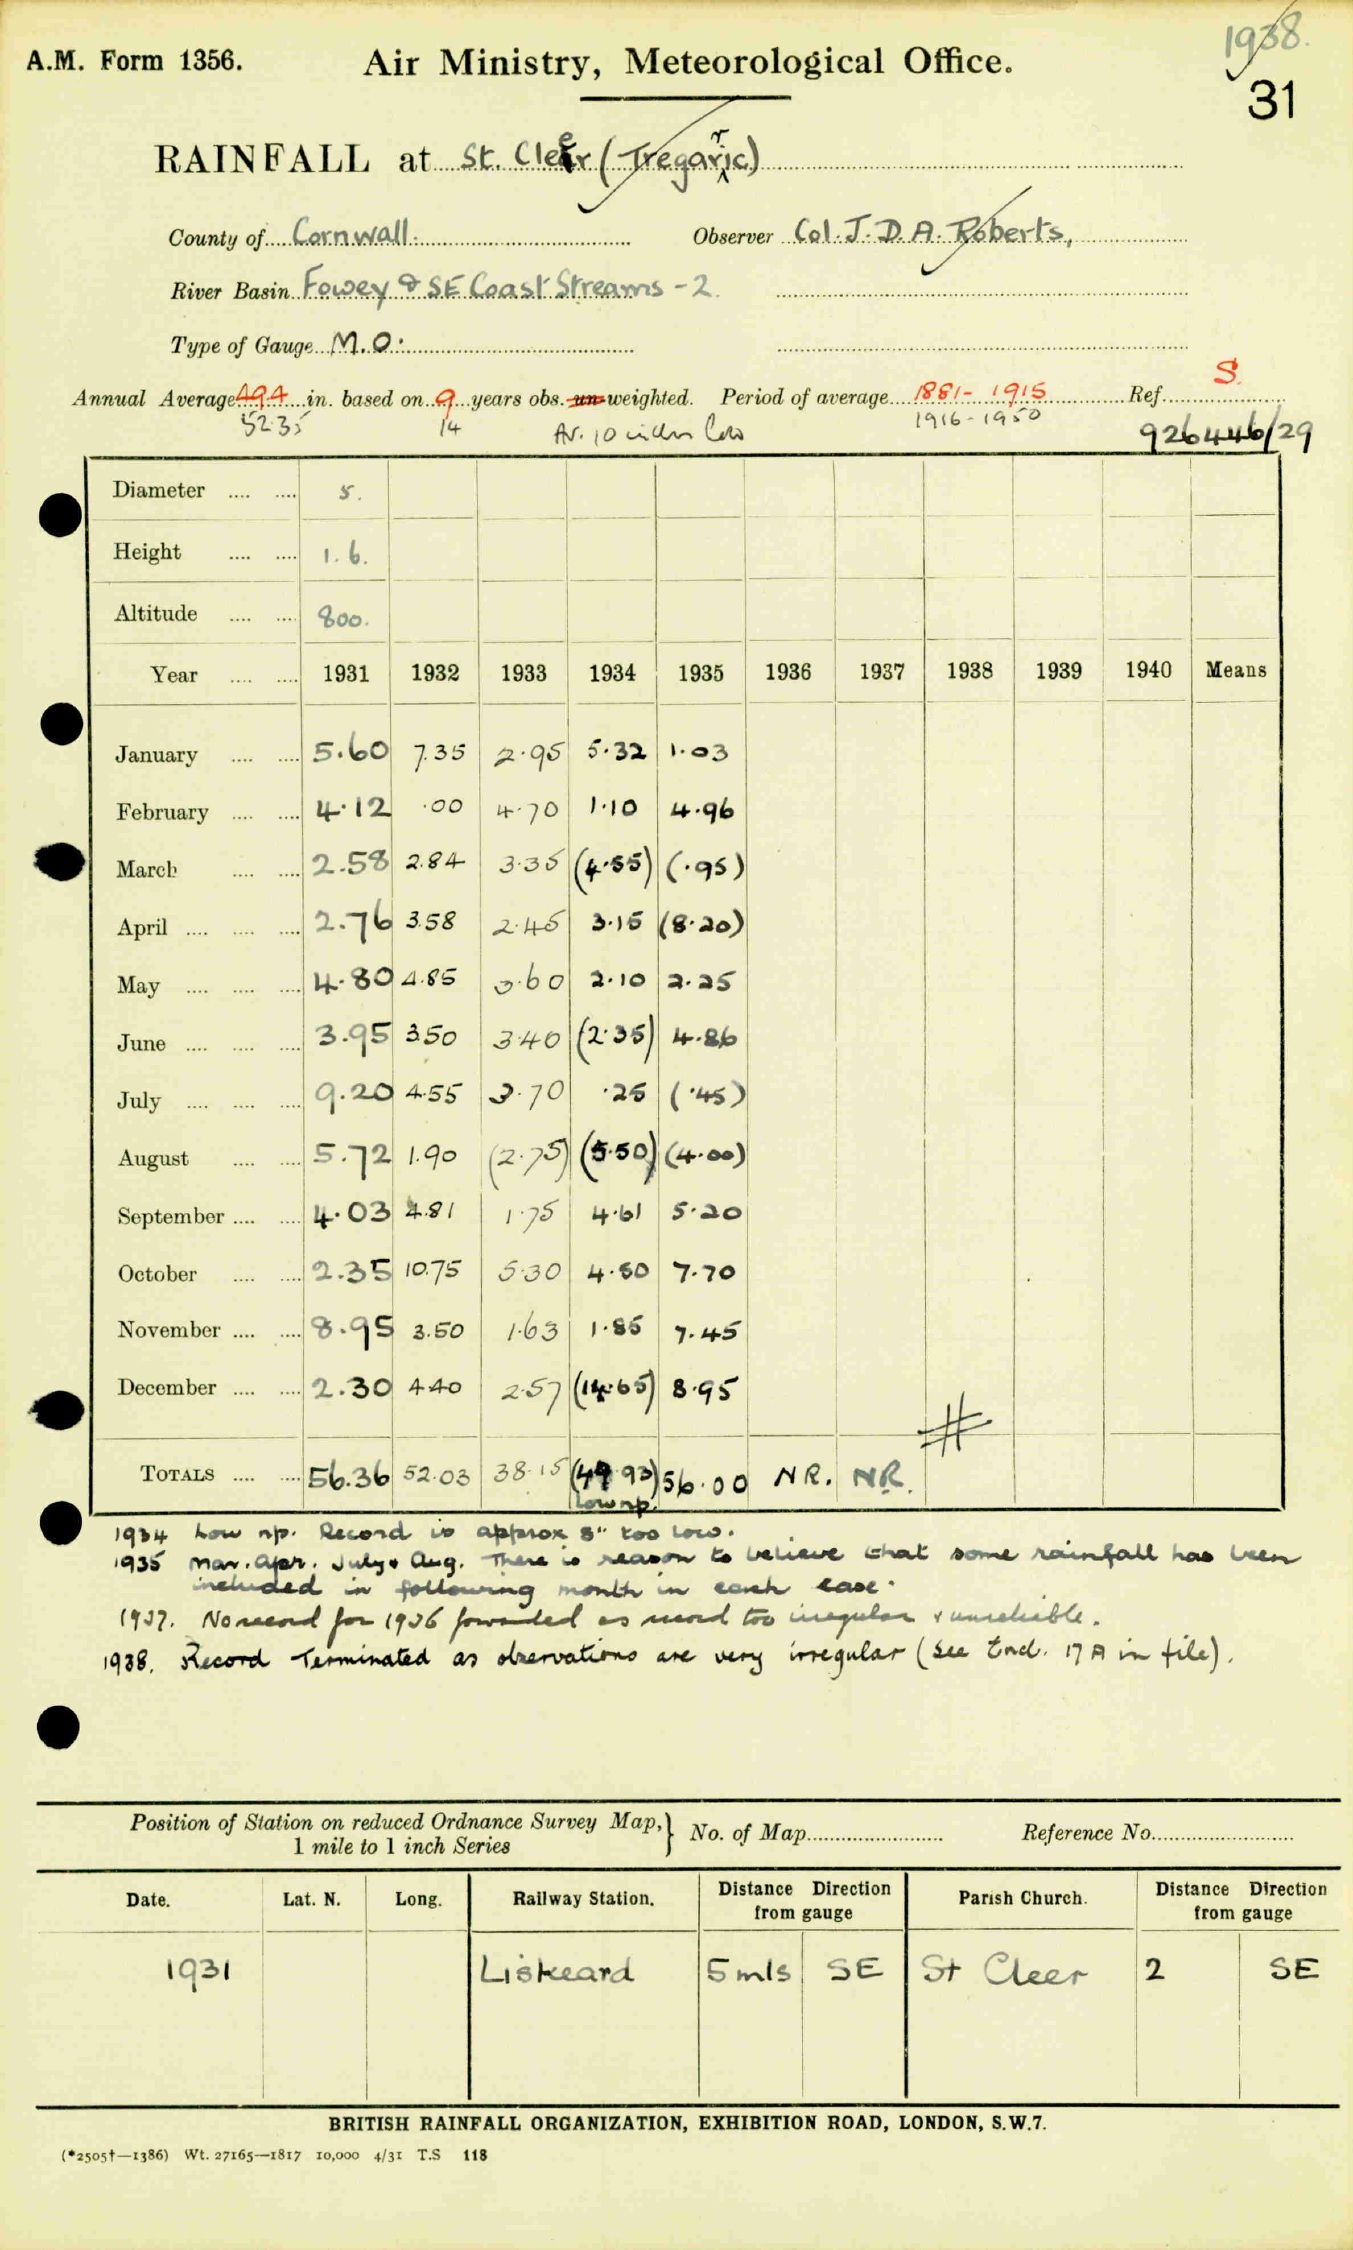 1938.
A.M. Form 1356. Air Ministry, Meteorological Office.
31
RAINFALL at St. Cleer (Tregarric)
County of Cornwall. Observer Col. J. D. A. Roberts,
River Basin Fowey & SE Coast Streams - 2.
Type of Gauge M.O.
Annual Average 49.4 in. based on 9 years obs. un-weighted. Period of average 1881 - 1915 Ref. S.
52.35 14 Av. 1916 - 1950 926446/29
Diameter 5.
Height 1.6.
Altitude 800.
Year 1931 1932 1933 1934 1935 1936 1937 1938 1939 1940 Means
January 5.60 7.35 2.95 5.32 1.03
February 4.12 .00 4.70 1.10 4.96
March 2.58 2.84 3.35 (4.55) (.95)
April 2.76 3.58 2.45 3.15 (8.20)
May 4.80 4.85 3.60 2.10 2.25
June 3.95 3.50 3.40 (2.35) 4.86
July 9.20 4.55 3.70 .25 (.45)
August 5.72 1.90 (2.75) (5.50) (4.00)
September 4.03 4.81 1.75 4.61 5.20
October 2.35 10.75 5.30 4.50 7.70
November 8.95 3.50 1.63 1.85 7.45
December 2.30 4.40 2.57 (14.65) 8.95
#
TOTALS 56.36 52.03 38.15 (49.93) 56.00 NR. NR.
Low np.
1934 Low np. Record is approx 8" too low.
1935 Mar. Apr. July & Aug. There is reason to believe that some rainfall has been
included in following month in each case.
1937. No record for 1936 forwarded as record too irregular & unreliable.
1938. Record Terminated as observations are very irregular (See Encl. 17A in file).
Position of Station on reduced Ordnance Survey Map, } No. of Map Reference No.
1 mile to 1 inch Series
Date. Lat. N. Long. Railway Station. Distance Direction from gauge Parish Church. Distance Direction from gauge
1931 Liskeard 5 mls SE St Cleer 2 SE
BRITISH RAINFALL ORGANIZATION, EXHIBITION ROAD, LONDON, S.W.7.
(*2505†—1386) Wt. 27165—1817 10,000 4/31 T.S 118